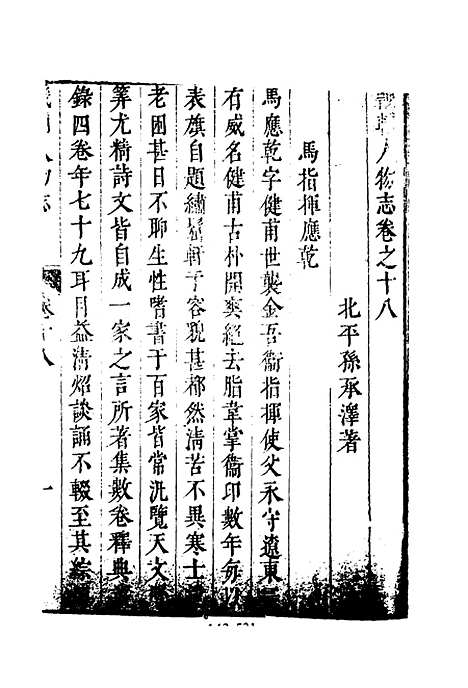 畿輔人物志卷之十八
北平孫承澤著
馬指揮應乾
馬應乾字健甫世襲金吾衛指揮使父永守遼東
有威名健甫古朴開爽絕去脂韋掌衛印數年
表旗自題繡軒于容貌甚都然淸苦不異寒士
老困甚日不聊生性嗜書于百家皆常汎覽天文
筭尤精詩文皆自成一家之言所著集數卷釋典
錄四卷年七十九耳目益淸炤談誦不輟至其綜
畿輔人物志
卷十八
一